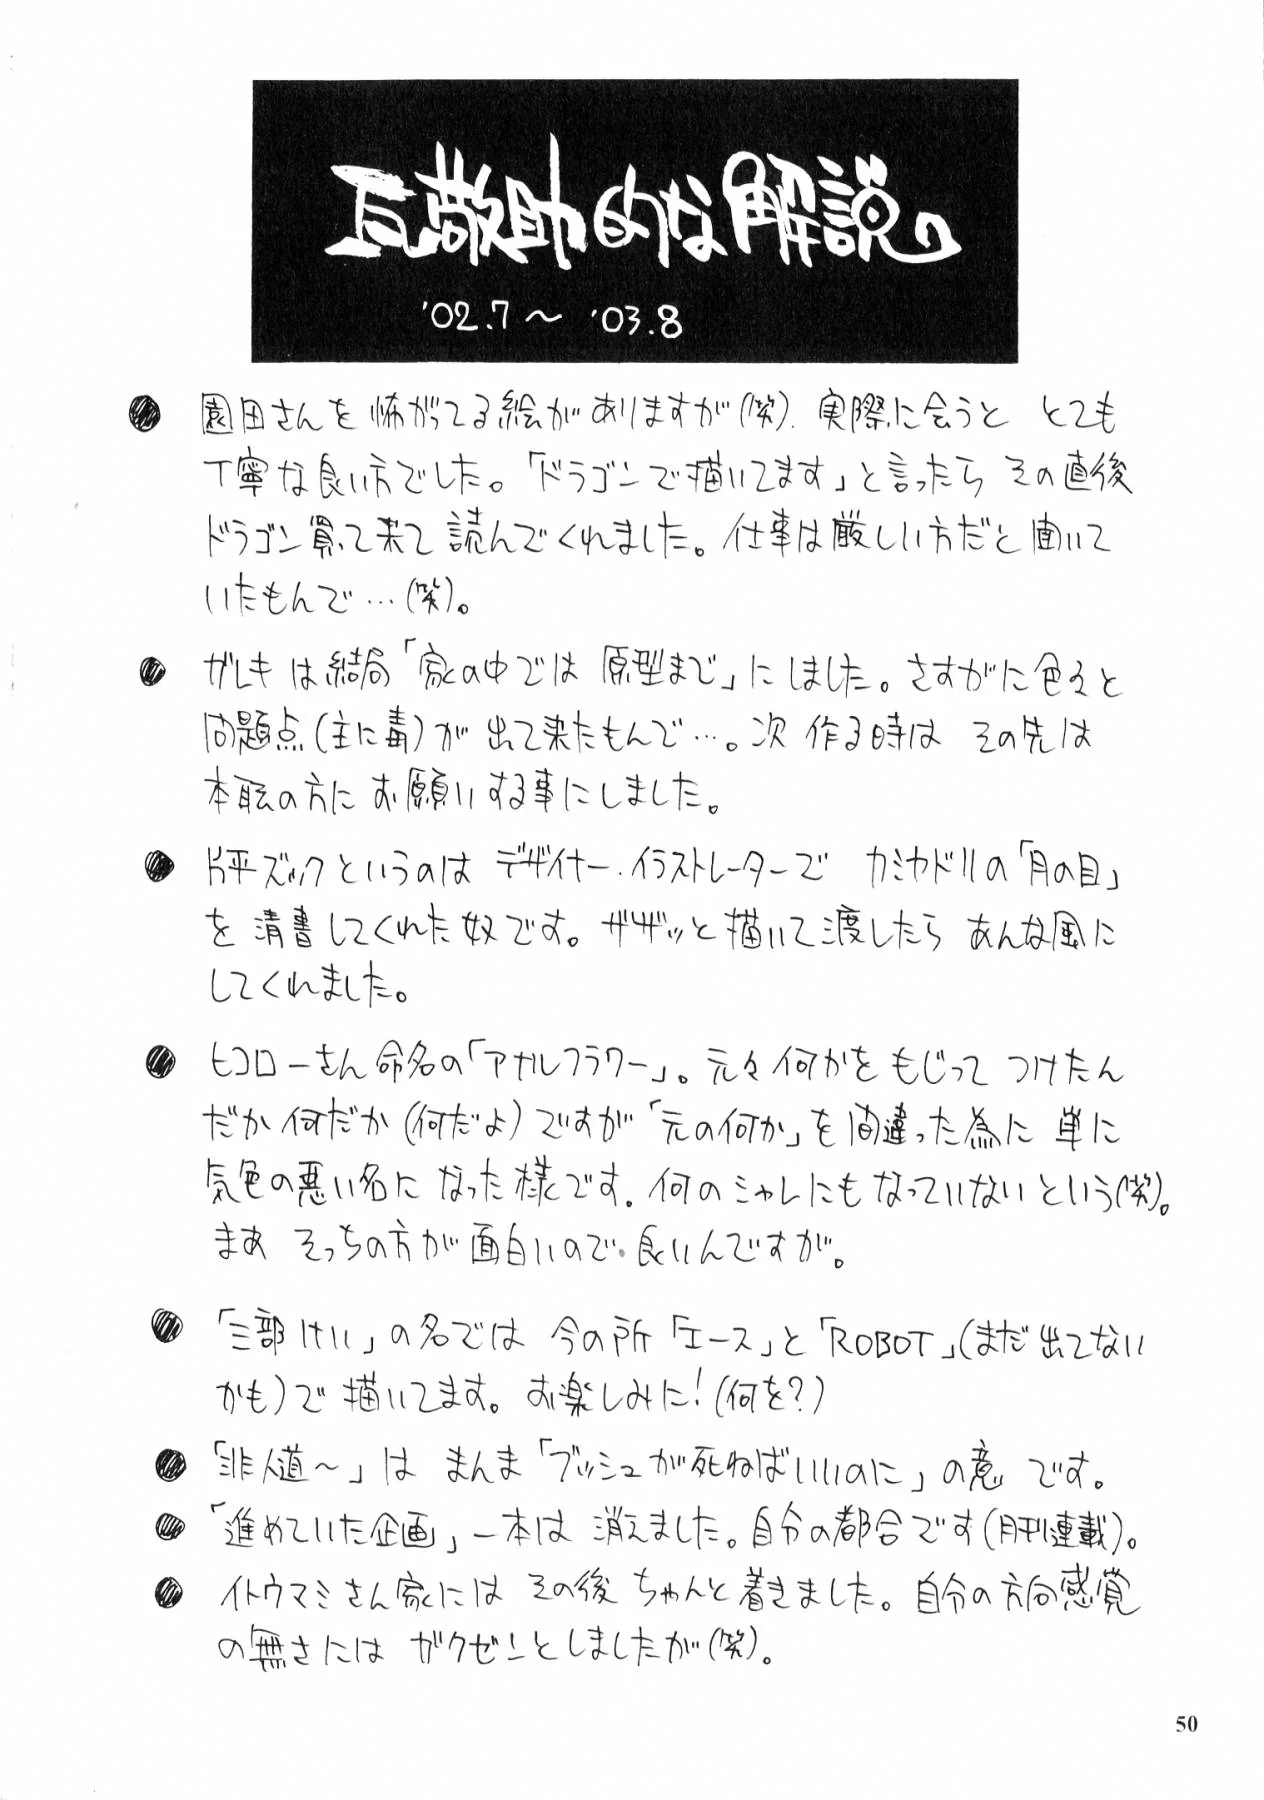 瓦敬助的な解説。
'02.7〜 '03.8
● 園田さんを怖がってる絵がありますが(笑). 実際に会うと とても
丁寧な良い方でした。「ドラゴンで描いてます」と言ったら その直後
ドラゴン買って来て 読んでくれました。仕事は厳しい方だと聞いて
いたもんで…(笑)。
● ガレキは結局「家の中では 原型まで」にしました。さすがに色々と
問題点(主に毒)が 出て来たもんで…。次 作る時は その先は
本職の方に お願いする事にしました。
● 片平ズックというのは デザイナー.イラストレーターで カミヤドリの「月の目」
を 清書してくれた奴です。ザザッと描いて渡したら あんな風に
してくれました。
● ヒコローさん命名の「アナルフラワー」。元々何かを もじって つけたん
だか何だか(何だよ)ですが「元の何か」を間違った為に 単に
気色の悪い名に なった様です. 何のシャレにもなっていないという(笑)。
まあ そっちの方が面白いので.良いんですが。
● 「三部けい」の名では 今の所「エース」と「ROBOT」(まだ出てない
かも)で 描いてます。お楽しみに!(何を?)
● 「非人道〜」は まんま「ブッシュが死ねばいいのに」の意 です。
● 「進めていた企画」一本は 消えました。自分の都合です(月刊連載)。
● イトウマミさん家には その後 ちゃんと着きました。自分の方向感覚
の無さには ガクゼンとしましたが(笑)。
50